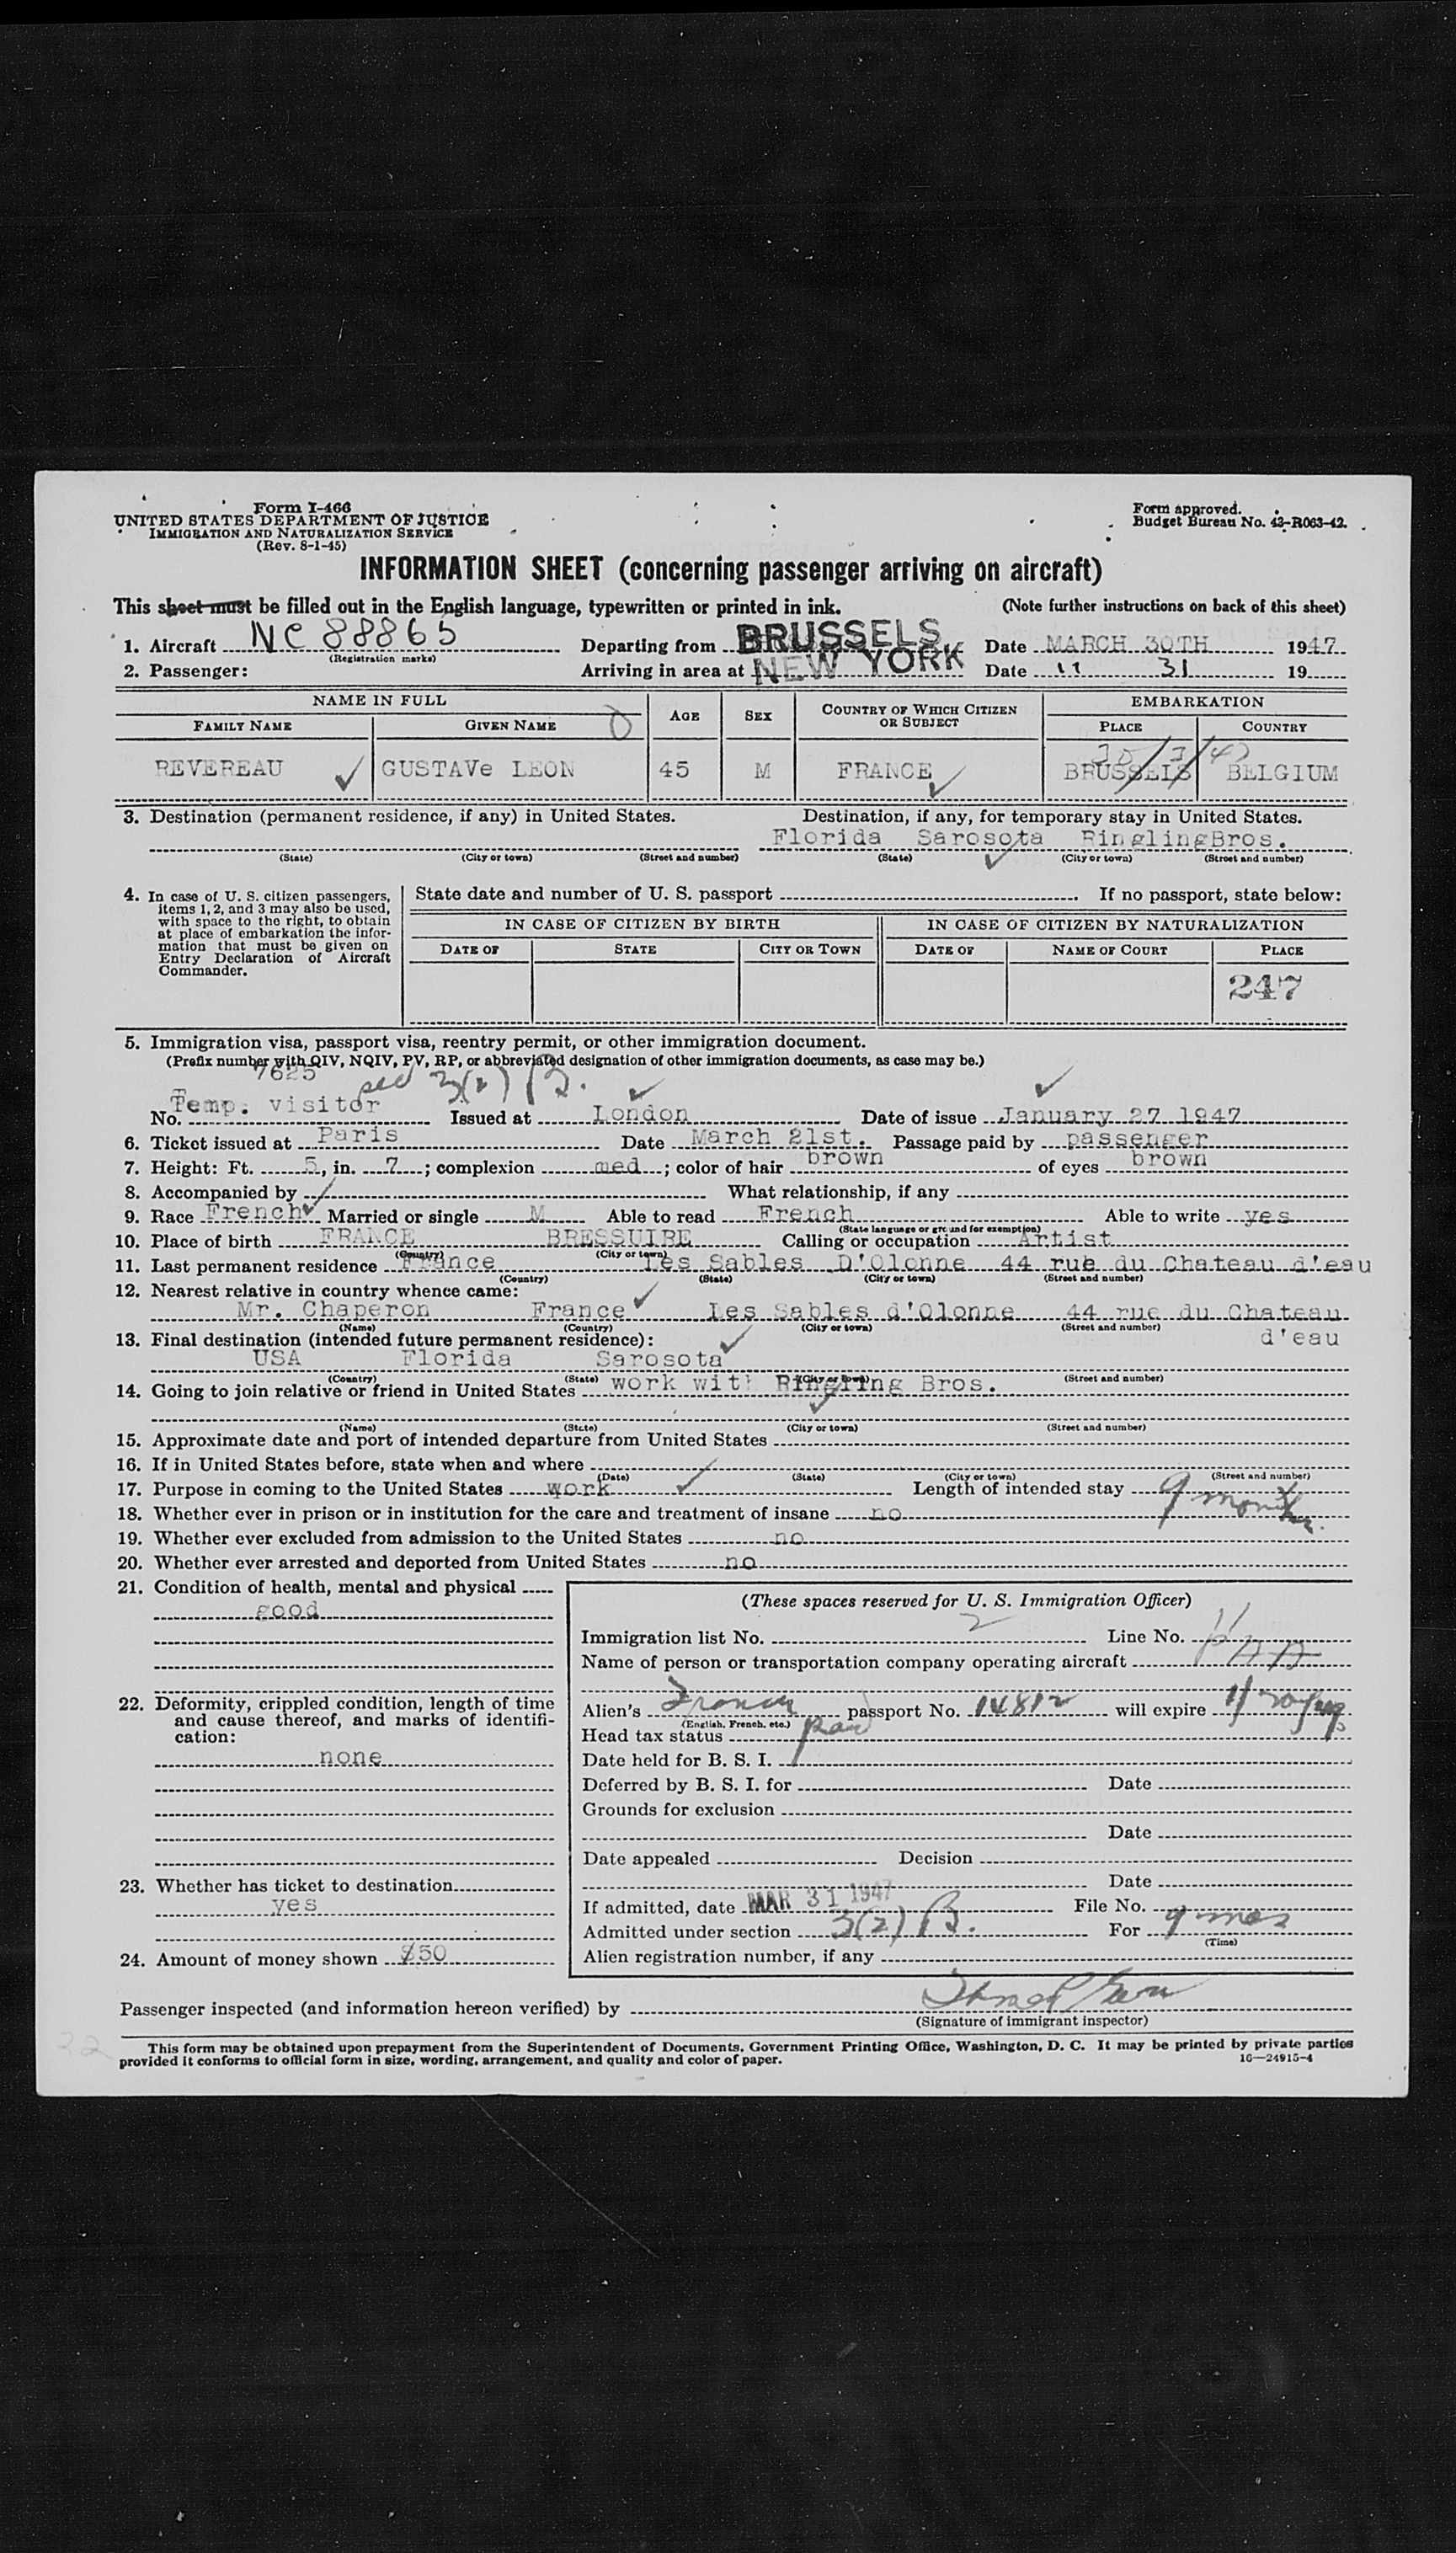 Form I-466
UNITED STATES DEPARTMENT OF JUSTICE
IMMIGRATION AND NATURALIZATION SERVICE
(Rev. 8-1-45)
Form approved.
Budget Bureau No. 43-R063-42.
INFORMATION SHEET (concerning passenger arriving on aircraft)
This sheet must be filled out in the English language, typewritten or printed in ink. (Note further instructions on back of this sheet)
1. Aircraft NC 88865 Departing from BRUSSELS Date MARCH 30TH 1947
(Registration marks)
2. Passenger: Arriving in area at NEW YORK Date 11 31 19
NAME IN FULL AGE SEX COUNTRY OF WHICH CITIZEN OR SUBJECT EMBARKATION
FAMILY NAME GIVEN NAME PLACE COUNTRY
REVEREAU GUSTAVe LEON 45 M FRANCE BRUSSELS BELGIUM
3. Destination (permanent residence, if any) in United States. Destination, if any, for temporary stay in United States.
Florida Sarosota RinglingBros.
(State) (City or town) (Street and number) (State) (City or town) (Street and number)
4. In case of U. S. citizen passengers, items 1, 2, and 3 may also be used, with space to the right, to obtain at place of embarkation the information that must be given on Entry Declaration of Aircraft Commander.
State date and number of U. S. passport . If no passport, state below:
IN CASE OF CITIZEN BY BIRTH IN CASE OF CITIZEN BY NATURALIZATION
DATE OF STATE CITY OR TOWN DATE OF NAME OF COURT PLACE
247
5. Immigration visa, passport visa, reentry permit, or other immigration document.
(Prefix number with QIV, NQIV, PV, RP, or abbreviated designation of other immigration documents, as case may be.)
7625 sec 3(2) B.
No. Temp. visitor Issued at London Date of issue January 27 1947
6. Ticket issued at Paris Date March 21st. Passage paid by passenger
7. Height: Ft. 5, in. 7; complexion med; color of hair brown of eyes brown
8. Accompanied by What relationship, if any
9. Race French Married or single M Able to read French Able to write yes
(State language or ground for exemption)
10. Place of birth FRANCE BRESSUIRE Calling or occupation Artist
(Country) (City or town)
11. Last permanent residence France Les Sables D'Olonne 44 rue du Chateau d'eau
(Country) (State) (City or town) (Street and number)
12. Nearest relative in country whence came:
Mr. Chaperon France Les Sables d'Olonne 44 rue du Chateau
(Name) (Country) (City or town) (Street and number)
d'eau
13. Final destination (intended future permanent residence):
USA Florida Sarosota
(Country) (State) (City or town) (Street and number)
14. Going to join relative or friend in United States work with Ringling Bros.
(Name) (State) (City or town) (Street and number)
15. Approximate date and port of intended departure from United States
16. If in United States before, state when and where
(Date) (State) (City or town) (Street and number)
17. Purpose in coming to the United States work Length of intended stay 9 months
18. Whether ever in prison or in institution for the care and treatment of insane no
19. Whether ever excluded from admission to the United States no
20. Whether ever arrested and deported from United States no
21. Condition of health, mental and physical
good
22. Deformity, crippled condition, length of time and cause thereof, and marks of identification:
none
23. Whether has ticket to destination
yes
24. Amount of money shown $50
(These spaces reserved for U. S. Immigration Officer)
Immigration list No. 2 Line No. 11
Name of person or transportation company operating aircraft PAA
Alien's passport No. 14812 will expire
(English, French, etc.)
Head tax status paid
Date held for B. S. I.
Deferred by B. S. I. for Date
Grounds for exclusion
Date
Date appealed Decision
Date
If admitted, date MAR 31 1947 File No.
Admitted under section 3(2) B. For 9 mos
(Time)
Alien registration number, if any
Passenger inspected (and information hereon verified) by
(Signature of immigrant inspector)
This form may be obtained upon prepayment from the Superintendent of Documents, Government Printing Office, Washington, D. C. It may be printed by private parties
provided it conforms to official form in size, wording, arrangement, and quality and color of paper. 16—24915-4